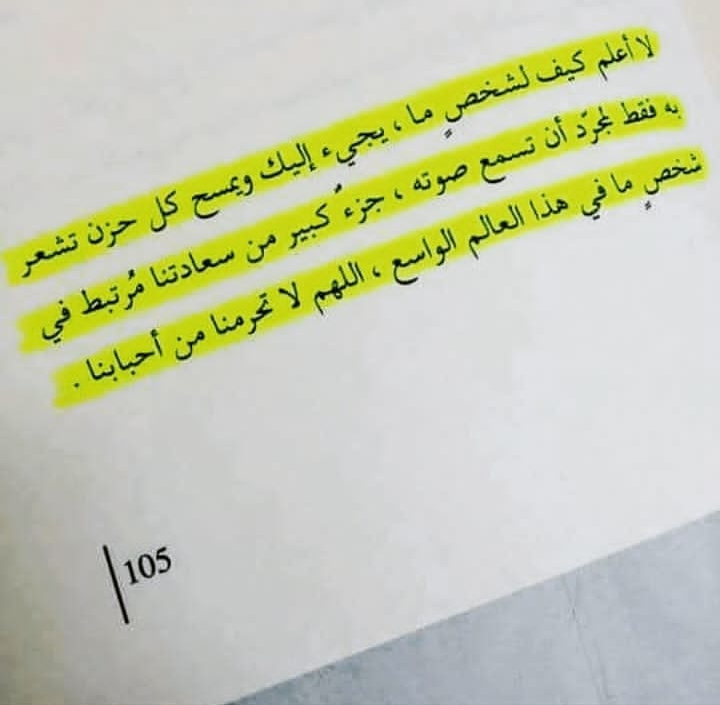 لا أعلم كيف لشخصٍ ما ، يجيء إليك ويمسح كل حزن تشعر
به فقط لمجرّد أن تسمع صوته ، جزءٌ كبير من سعادتنا مُرتبط في
شخصٍ ما في هذا العالم الواسع ، اللهم لا تحرمنا من أحبابنا .
105